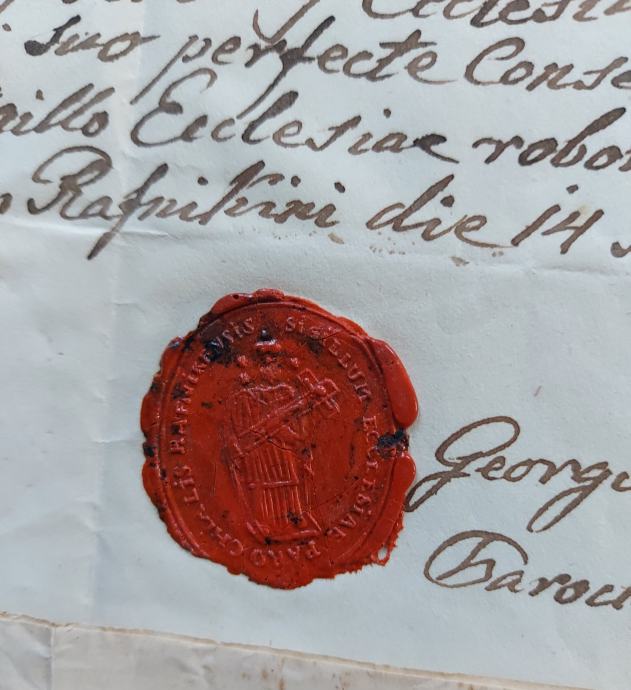 Ecclesia
suo perfecte Conse
gillo Ecclesiae robor
Rafnikini die 14
SIGILLUM ECCLESIAE PAROCHIALIS RAFNIKENSIS
Georgi
Paroch